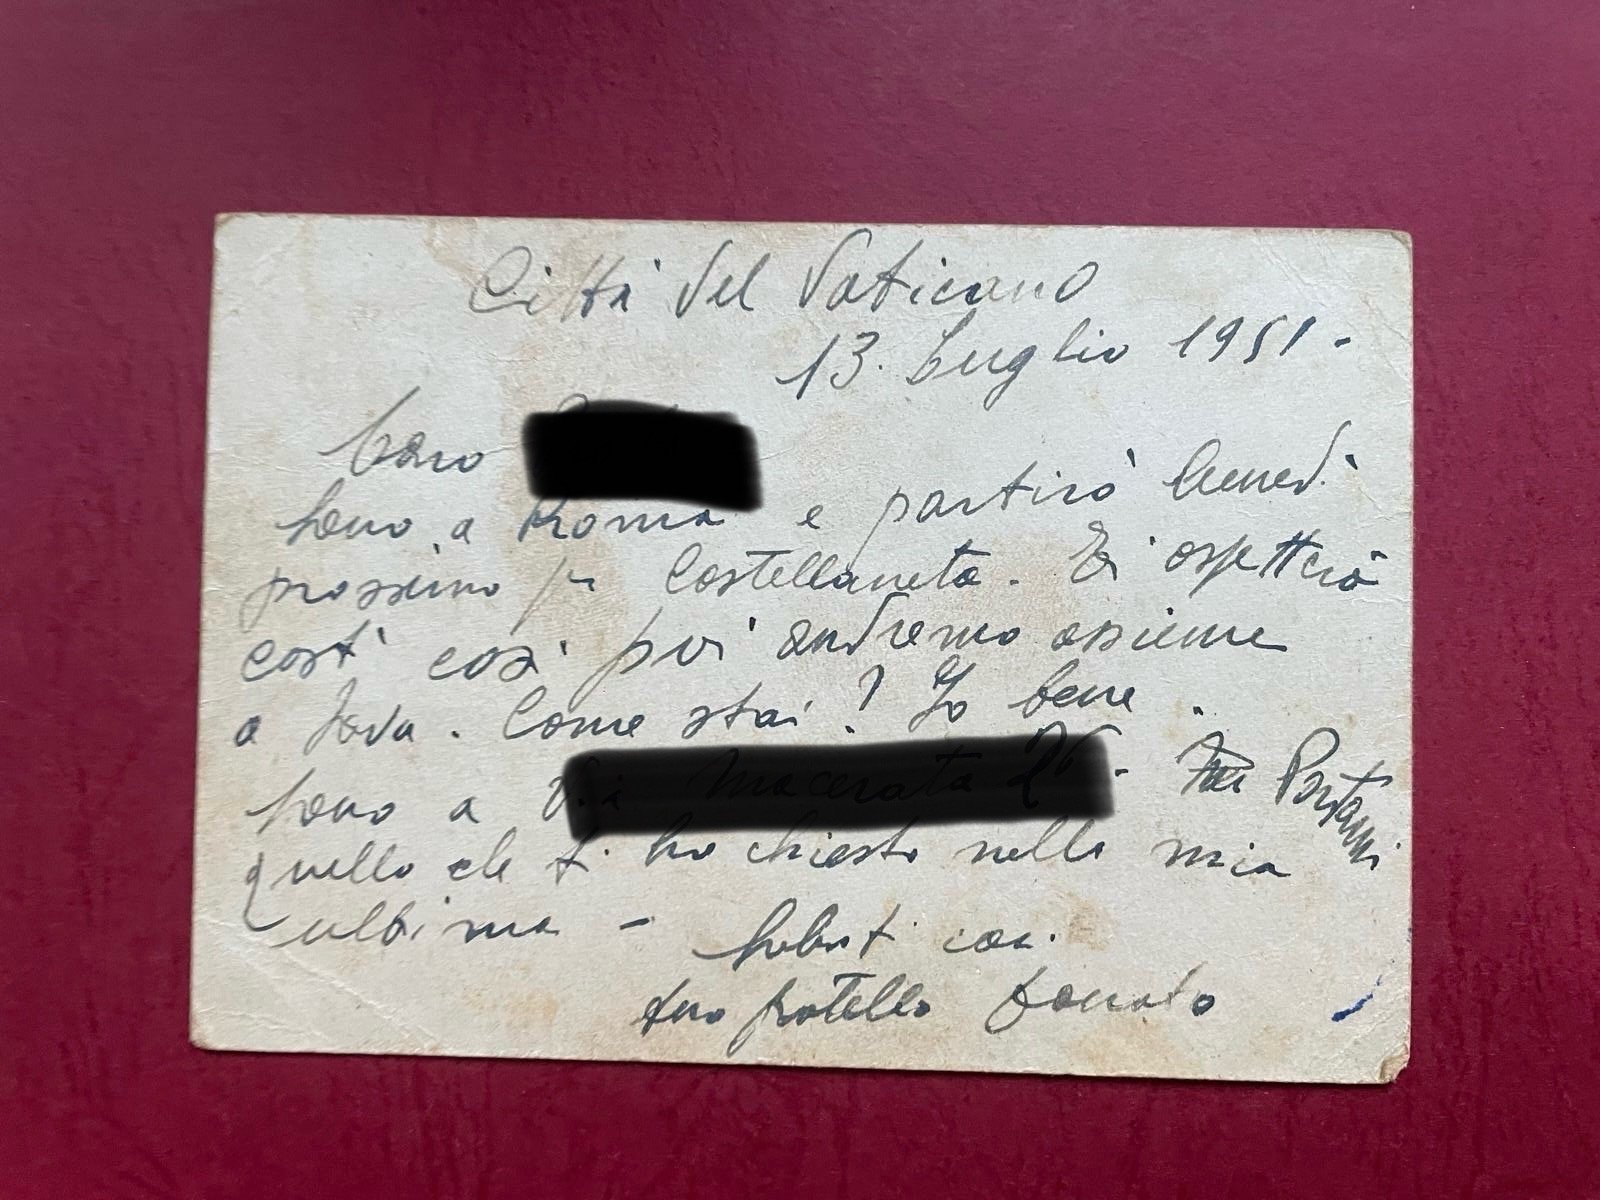 Città del Vaticano
13. Luglio 1951-
Caro
sono a Roma e partirò lunedì
prossimo per Castellaneta. Ti aspetterò
costì così poi andremo assieme
a Java. Come stai? Io bene.
sono a Portami
quello che ti ho chiesto nella mia
ultima -
Saluti cari
tuo fratello Donato